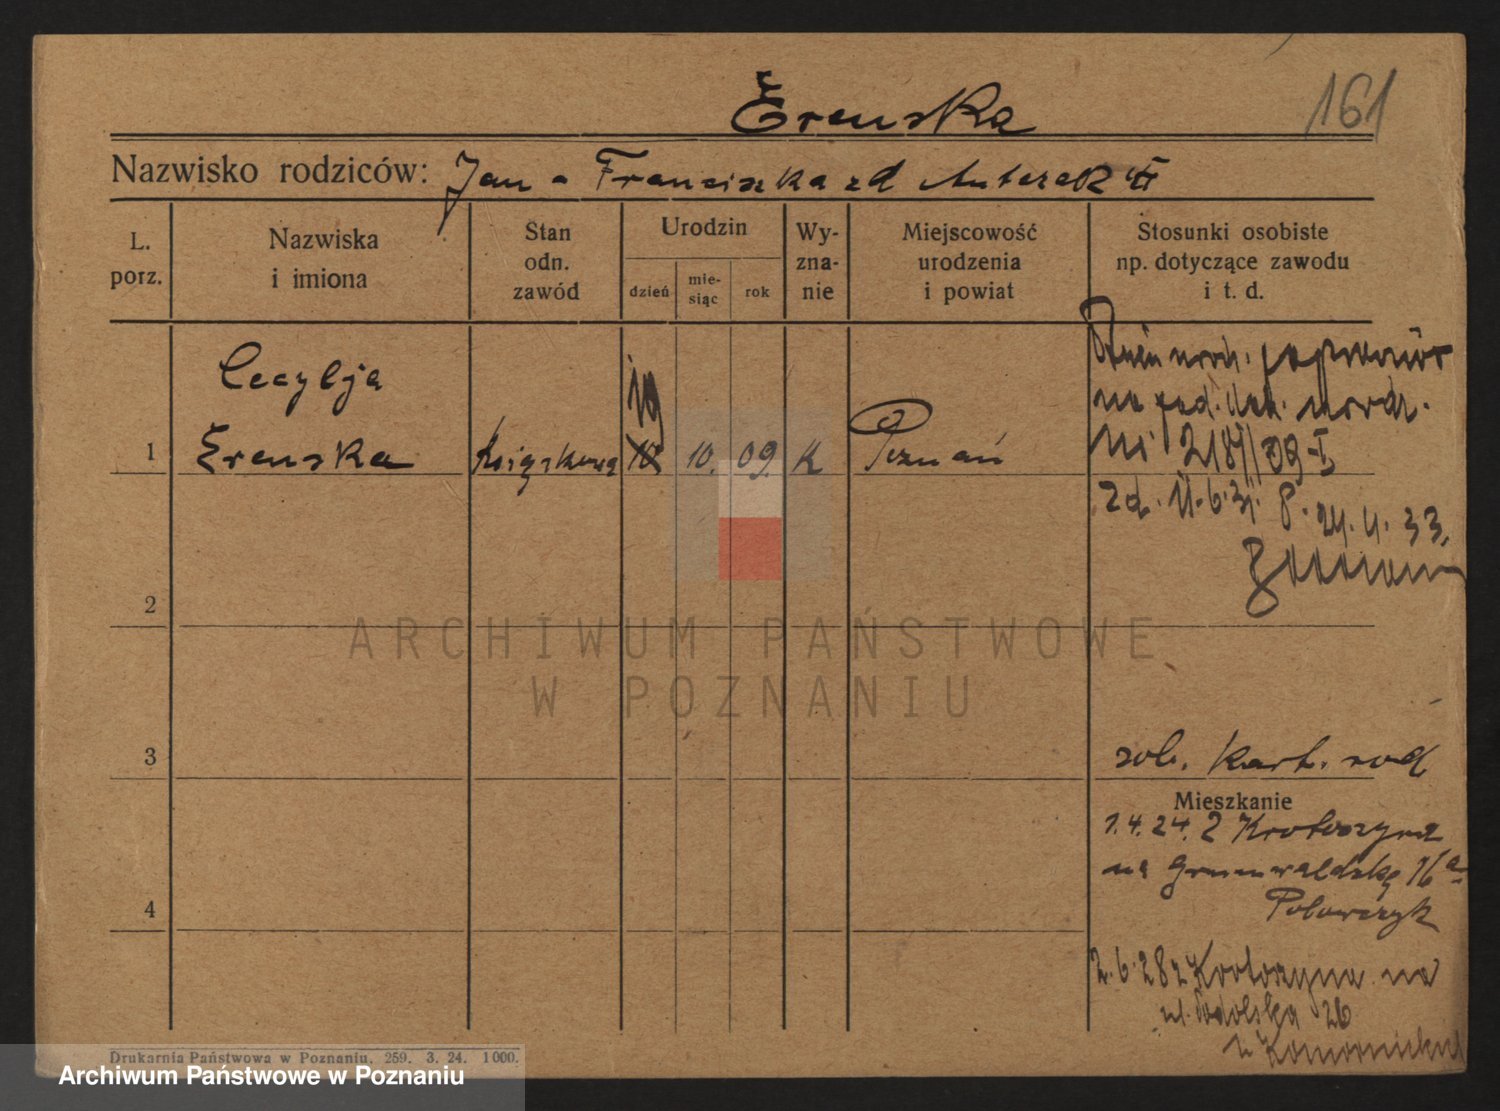 Erenska
161
Nazwisko rodziców: Jan a Franciszka zd Anterek
L. porz.
Nazwiska i imiona
Stan odn. zawód
Urodzin
dzień
mie-siąc
rok
Wy-zna-nie
Miejscowość urodzenia i powiat
Stosunki osobiste np. dotyczące zawodu i t. d.
Cecylja
1 Erenska Książkowa 19 10. 09. K Poznań
Dzień urodz.
zd. 11.6.31. P. 24.4.33.
2
3
zob. kart. rod
Mieszkanie
1.4.24. z Krotoszyna
na Grunwaldzką 16a
4
2.6.28 z Krotoszyna na
ul. Podolska 26
Drukarnia Państwowa w Poznaniu. 259. 3. 24. 1000.
ARCHIWUM PAŃSTWOWE
W POZNANIU
Archiwum Państwowe w Poznaniu